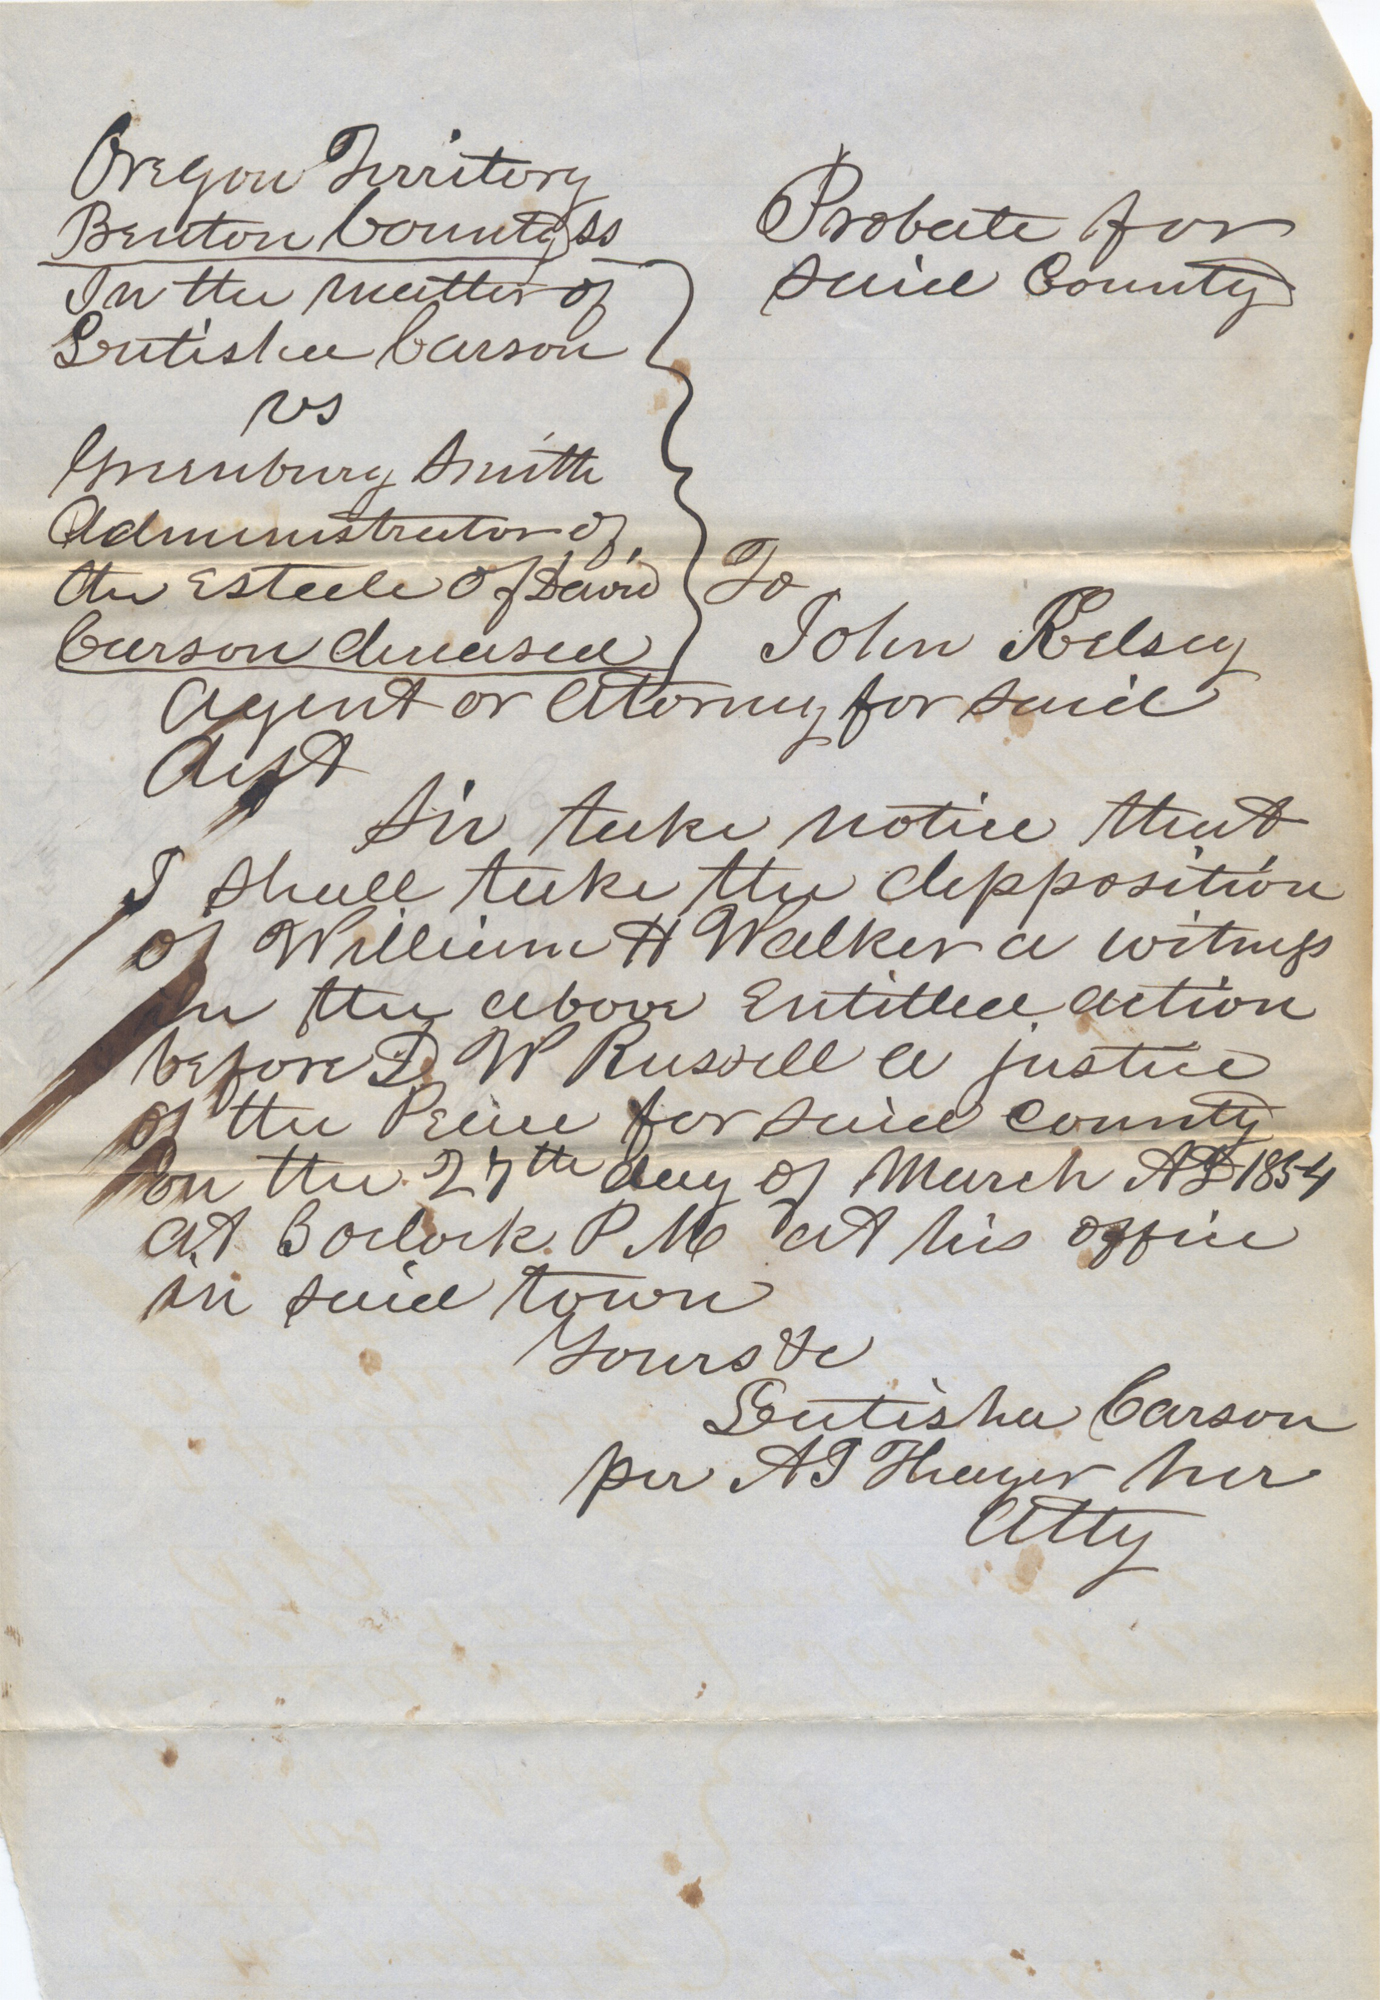 Oregon Territory
Benton County ss
Probate for
said County
In the matter of
Letitia Carson
vs
Greenburg Smith
Administrator of
the Estate of David
Carson deceased
To
John Kelsay
Agent or Attorney for said
Sir take notice that
I shall take the depposition
of William H Walker a witness
in the above Entitled action
before D W Russell a justice
of the Peace for said County
on the 27th day of March AD 1854
at 3 oclock P.M. at his office
in said town
Yours &c
Letitia Carson
per A J Thayer her
Atty